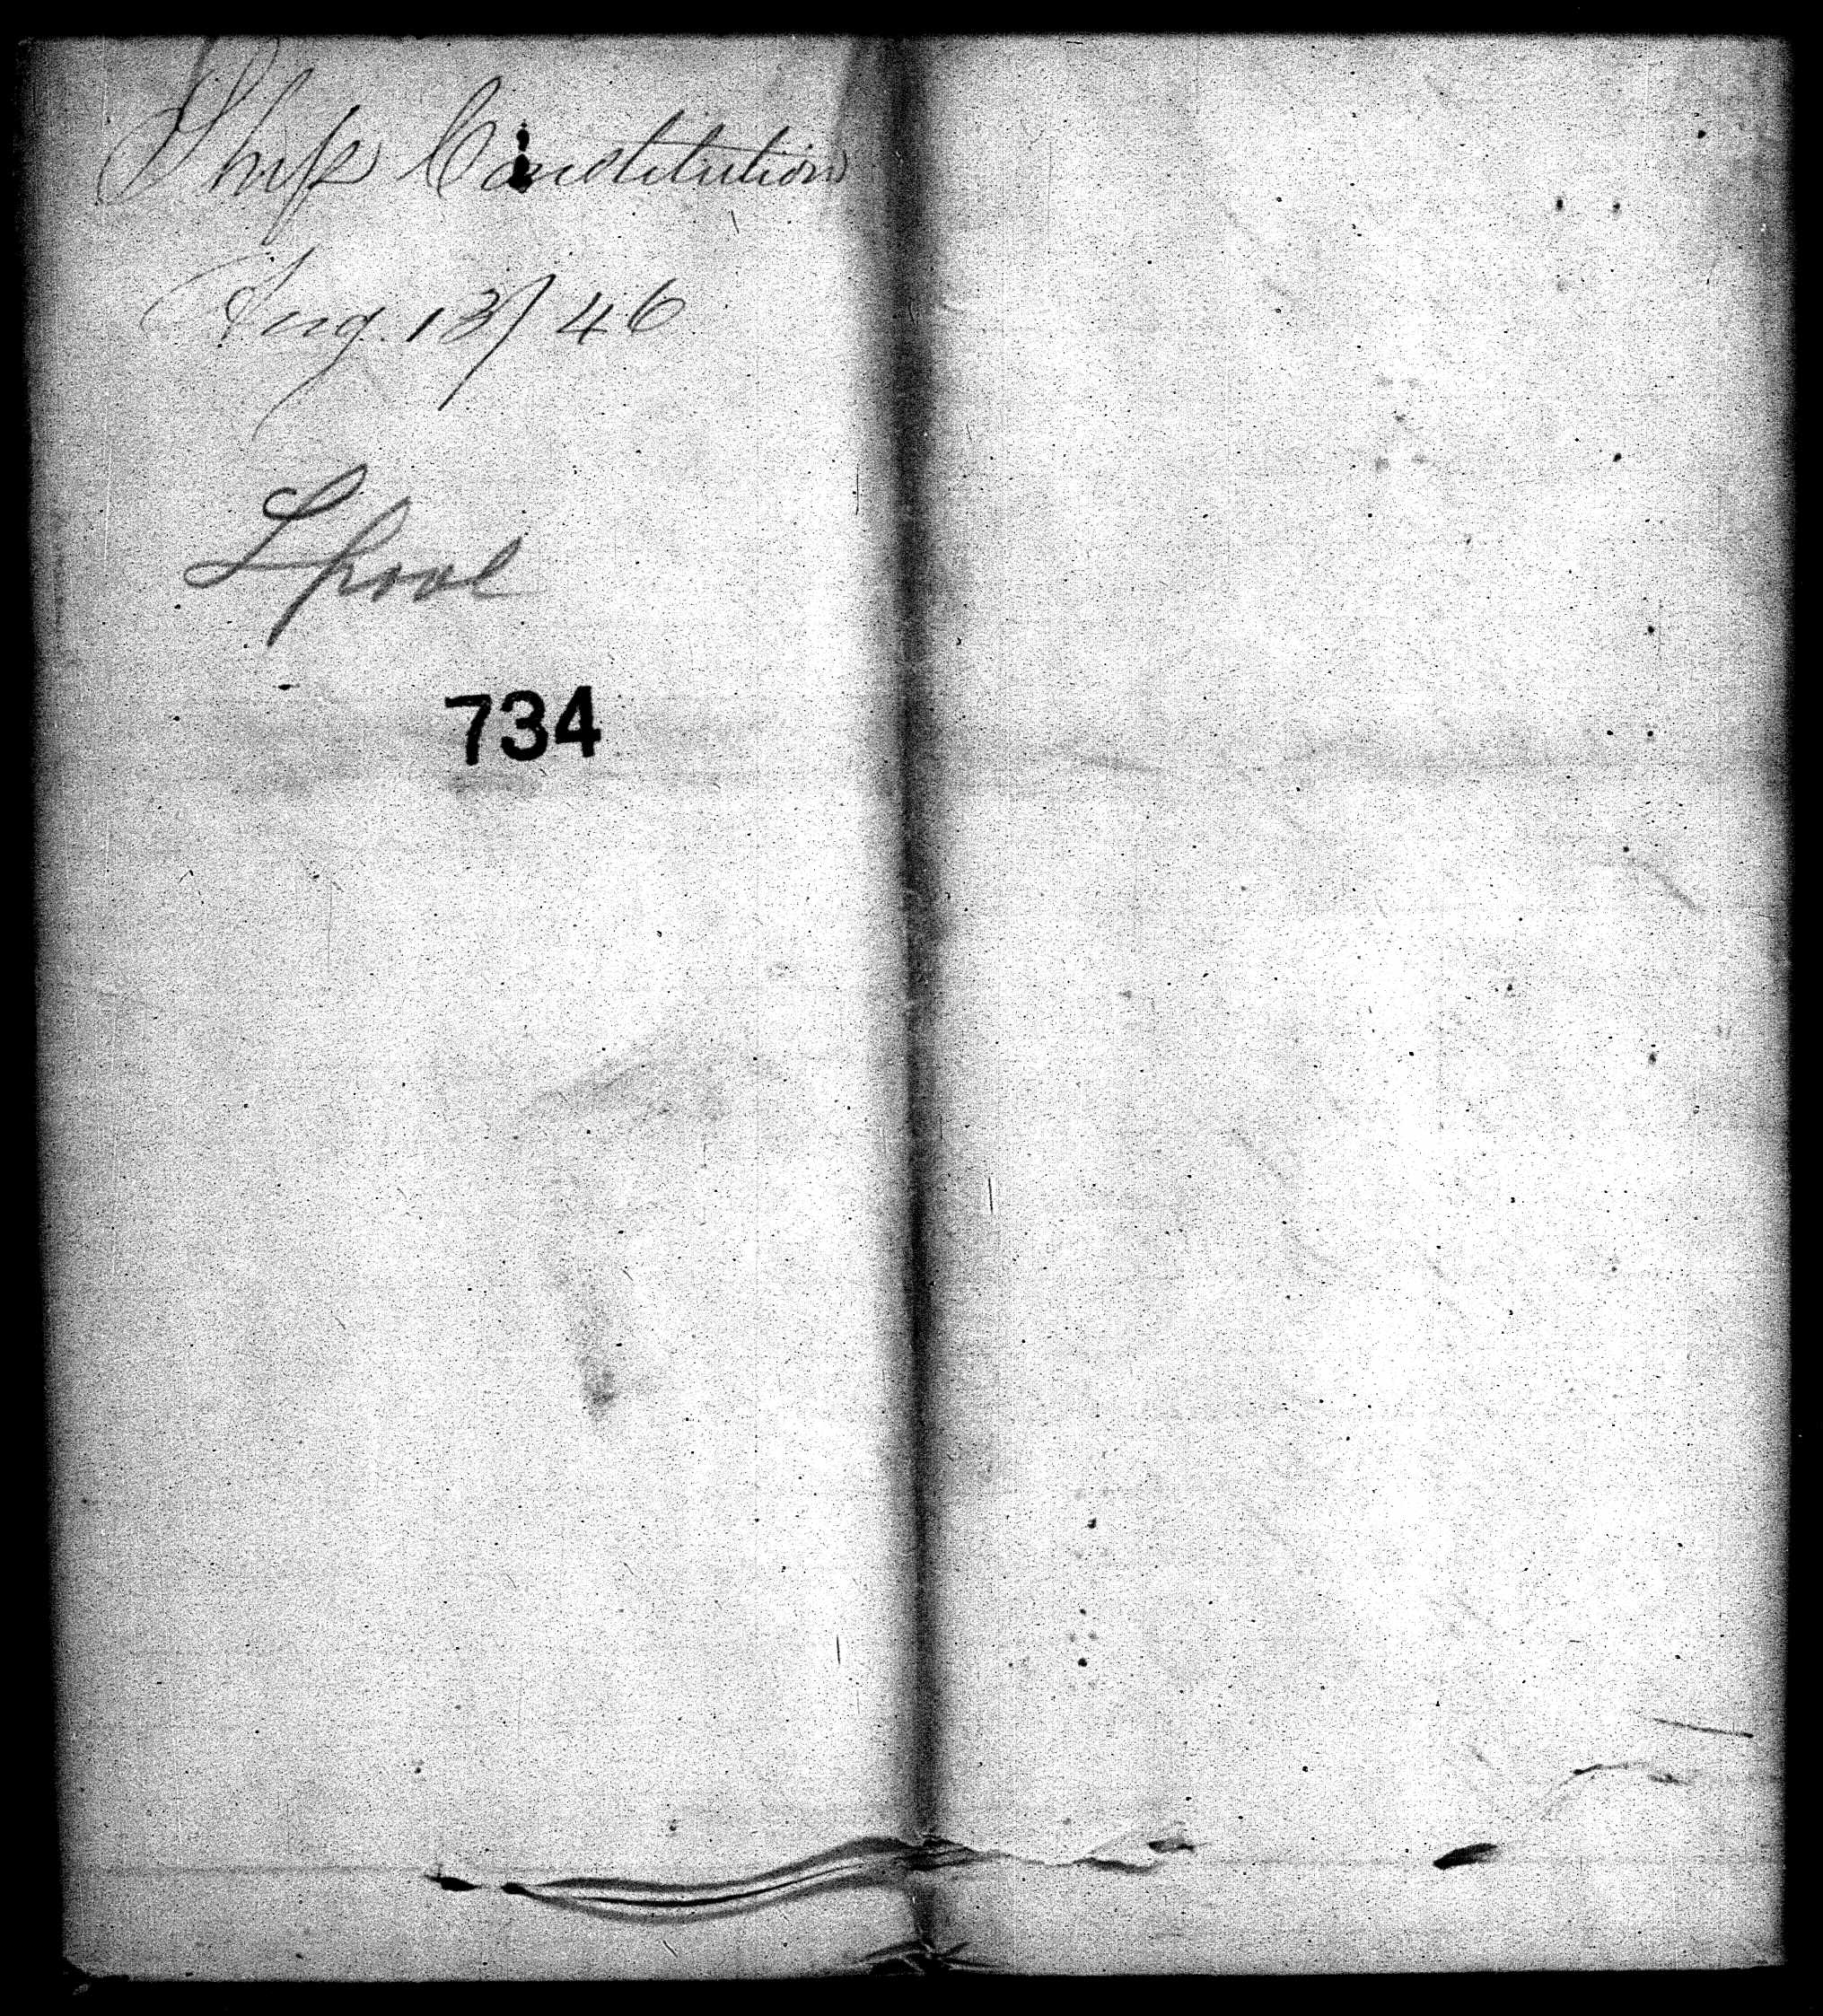 Ship Constitution
Aug. 13/46
Lpool
734